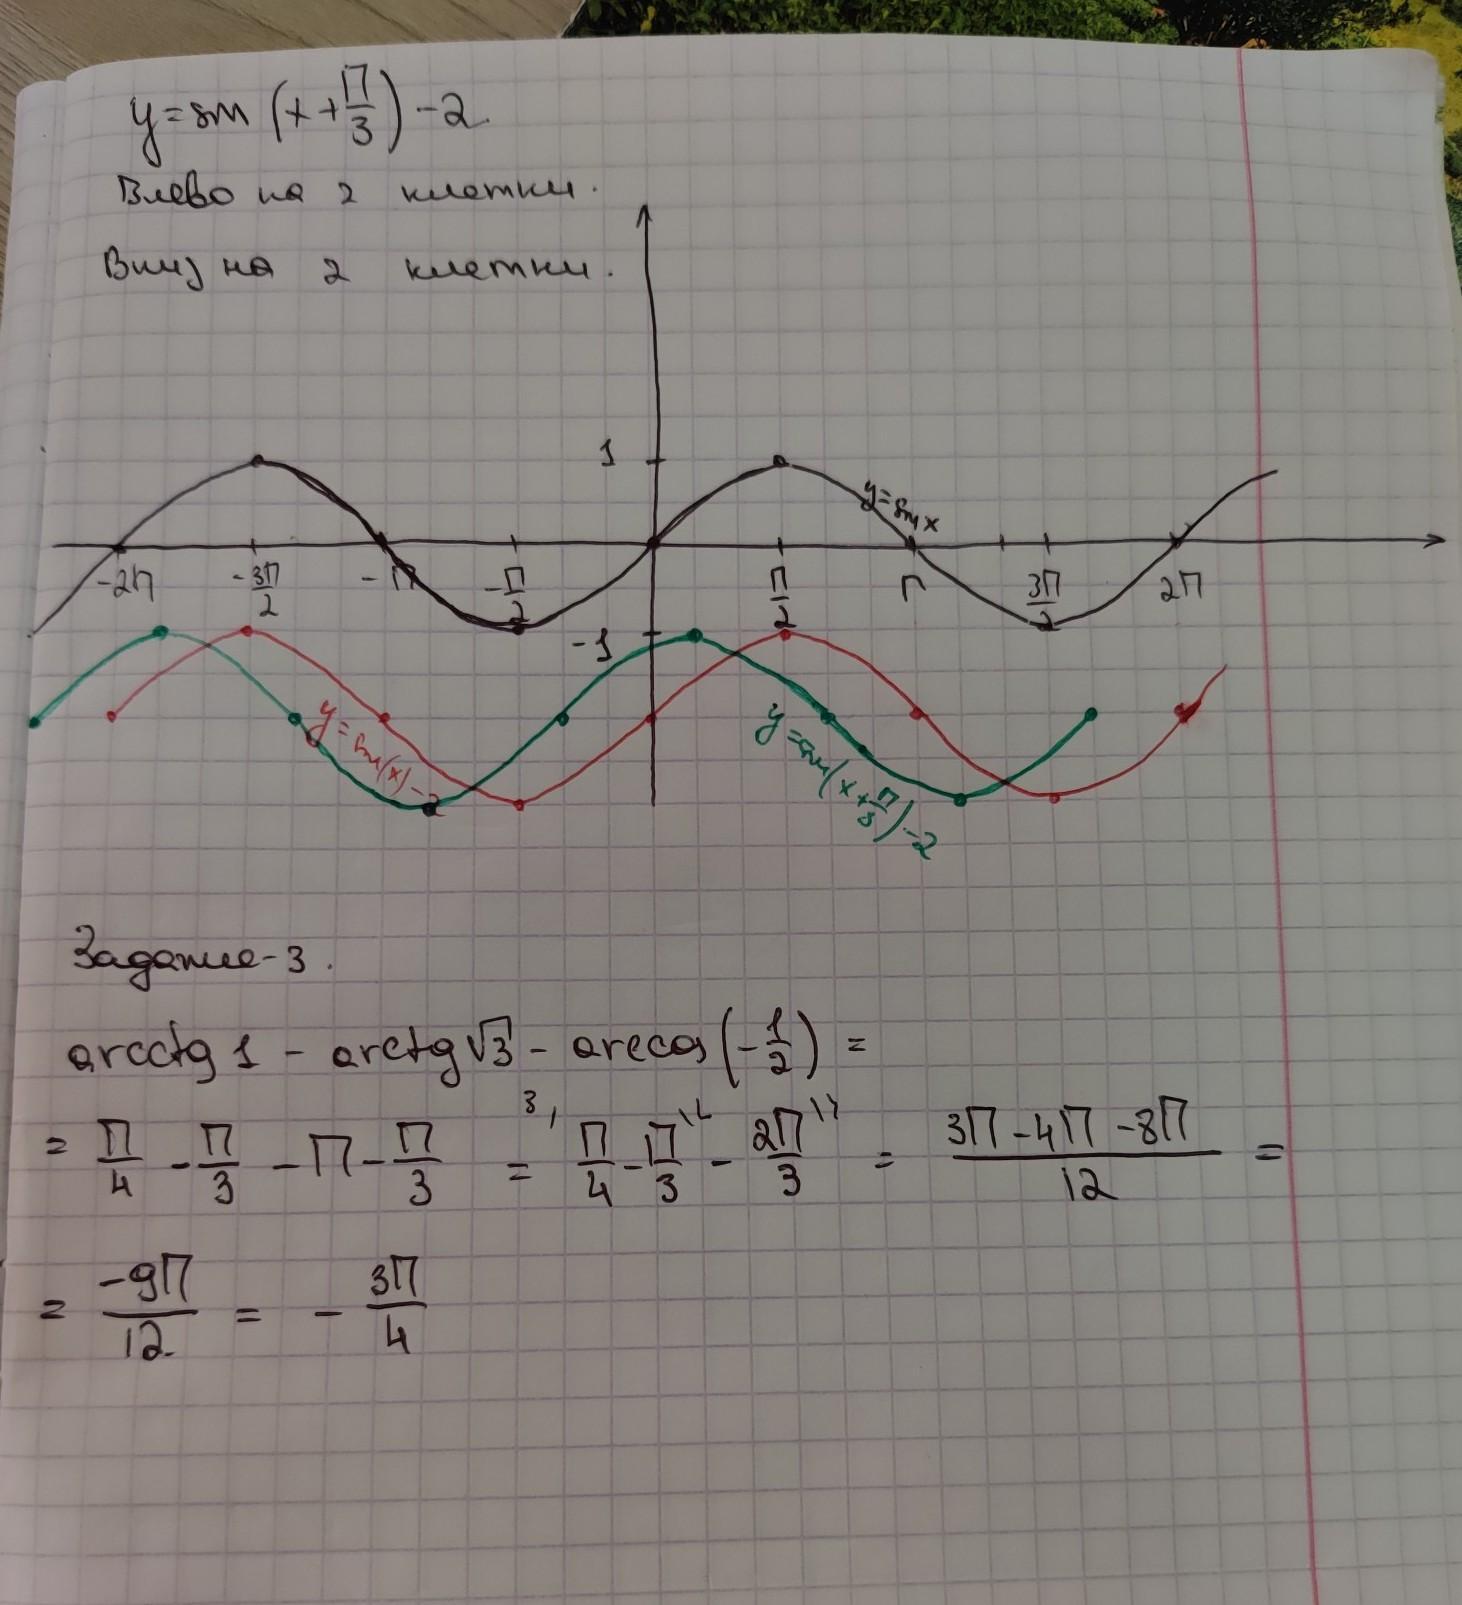 y = sin (x + П/3) - 2.
Влево на 2 клетки.
Вниз на 2 клетки.
1
y = sin x
-2П -3П/2 -П -П/2 П/2 П 3П/2 2П
-1
y = sin(x) - 2
y = sin(x + П/3) - 2
Задание-3.
arcctg 1 - arctg √3 - arccos (-1/2) =
= П/4 - П/3 - П - П/3 = П/4 - П/3 - 2П/3 = 3П - 4П - 8П/12 =
= -9П/12 = - 3П/4